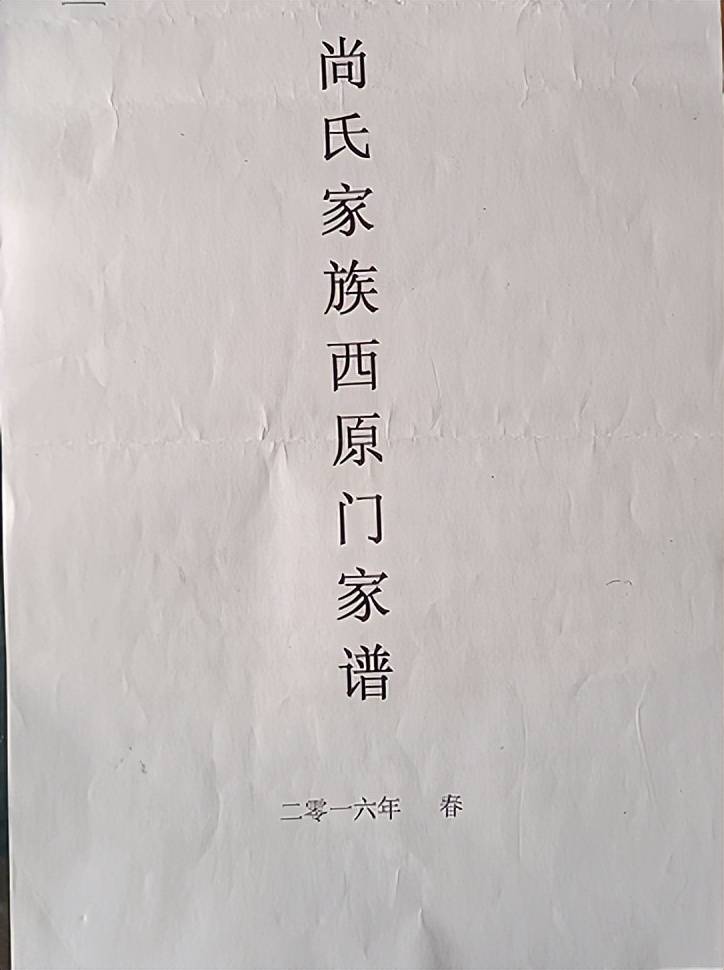 尚氏家族西原门家谱
二零一六年 春